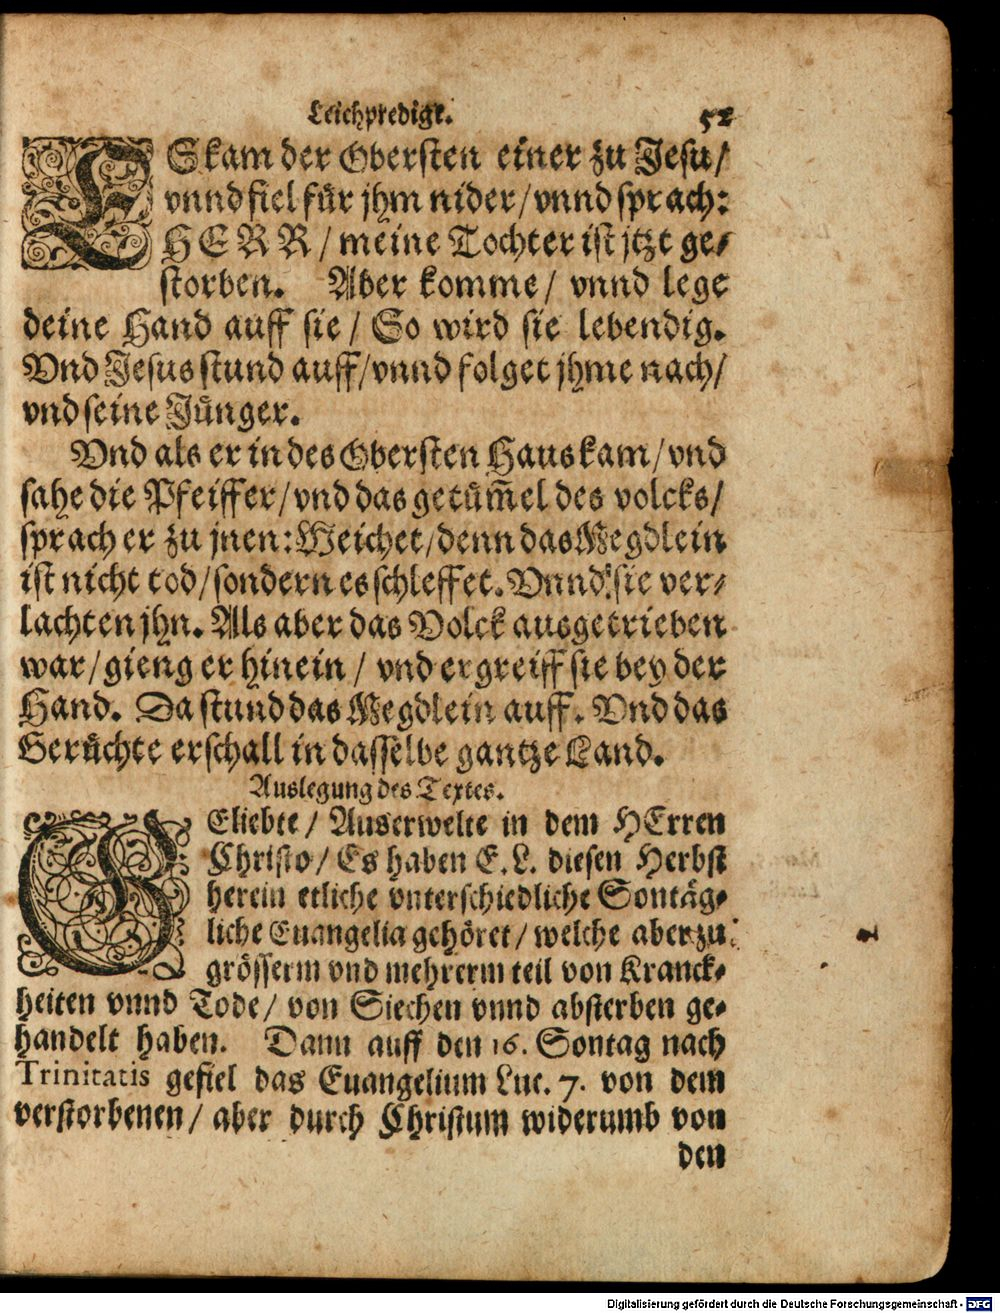 Leichpredigt. 52
ES kam der Obersten einer zu Jesu/
vnnd fiel für jhm nider/vnnd sprach:
HERR/meine Tochter ist jtzt ge-
storben. Aber komme/ vnnd lege
deine Hand auff sie/ So wird sie lebendig.
Vnd Jesus stund auff/vnnd folget jhme nach/
vnd seine Jünger.
Vnd als er in des Obersten Haus kam/vnd
sahe die Pfeiffer/vnd das getüm̃el des volcks/
sprach er zu jnen: Weichet/denn das Megdlein
ist nicht tod/sondern es schleffet. Vnnd sie ver-
lachten jhn. Als aber das Volck ausgetrieben
war/gieng er hinein/ vnd ergreiff sie bey der
Hand. Da stund das Megdlein auff. Vnd das
Gerüchte erschall in dasselbe gantze Land.
Auslegung des Textes.
GEliebte/ Auserwelte in dem HErren
Christo/ Es haben E. L. diesen Herbst
herein etliche vnterschiedliche Sontäg-
liche Euangelia gehöret/ welche aber zu
grösserm vnd mehrerm teil von Kranck-
heiten vnnd Tode/ von Siechen vnnd absterben ge-
handelt haben. Dann auff den 16. Sontag nach
Trinitatis gefiel das Euangelium Luc. 7. von dem
verstorbenen/ aber durch Christum widerumb von
den
Digitalisierung gefördert durch die Deutsche Forschungsgemeinschaft - DFG